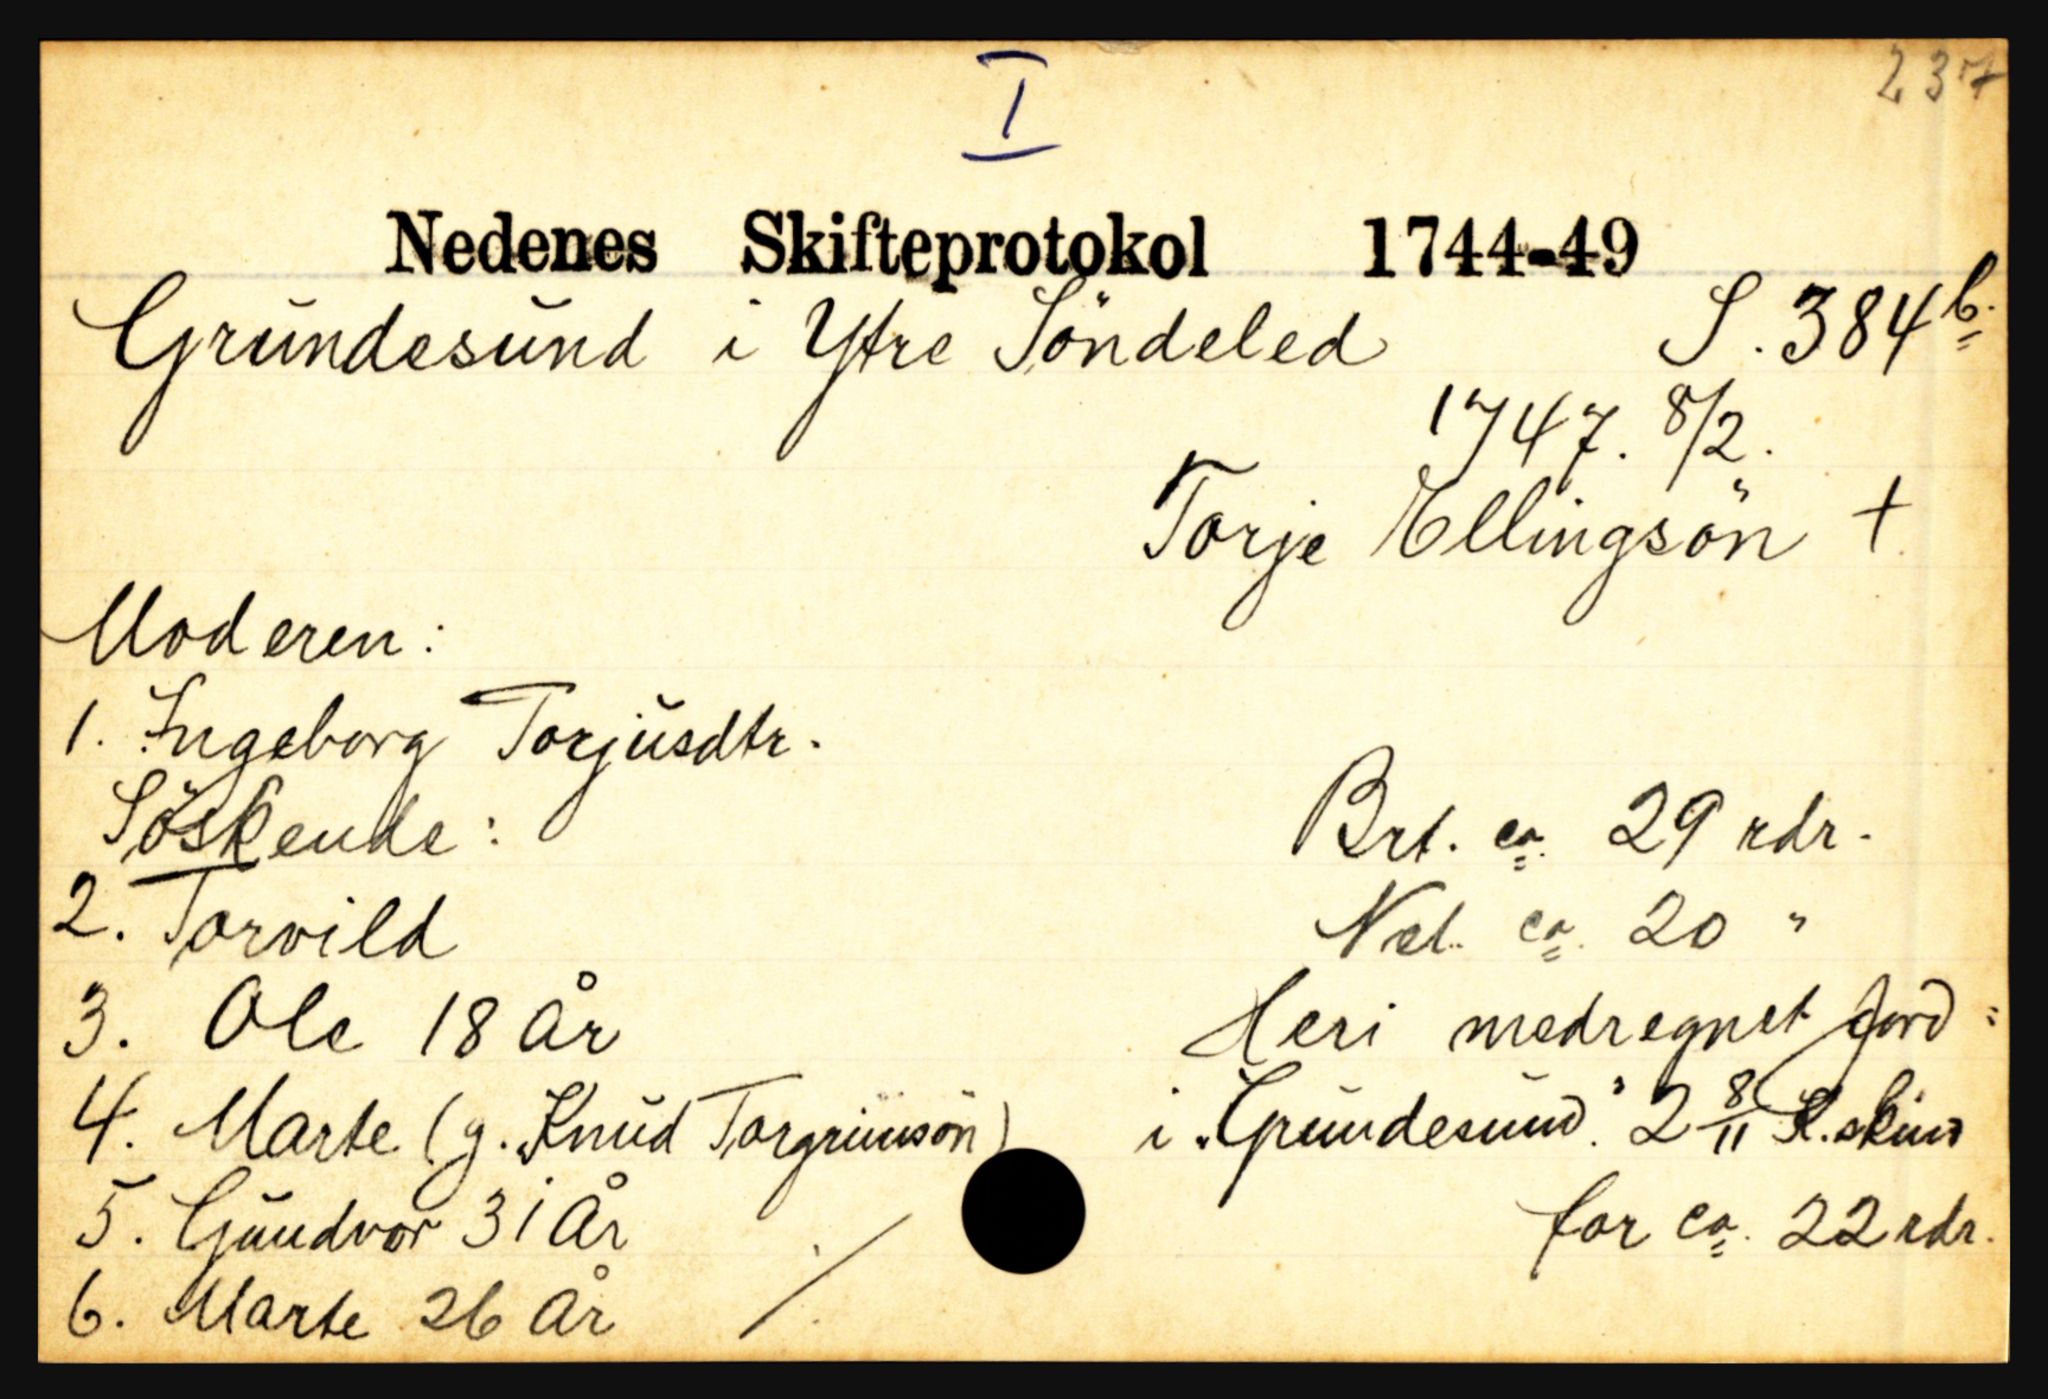 I
237
Nedenes Skifteprotokol 1744-49
Grundesund i Ytre Söndeled S. 384 b.
1747. 8/2.
Torje Ellingsön +
Moderen:
1. Ingeborg Torjusdtr.
Söskende:
2. Torvild
3. Ole 18 år
4. Marte (g. Knud Torgrimsön)
5. Gundvor 31 år
6. Marte 26 år
Brt. ca. 29 rdr.
Net. ca. 20 "
Heri medregnet jord:
i "Grundesund" 2 8/11 K. skind
for ca. 22 rdr.